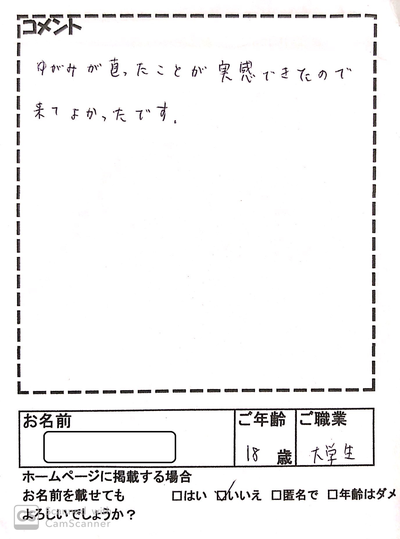 コメント
ゆがみが直ったことが実感できたので
来てよかったです.
お名前
ご年齢
18 歳
ご職業
大学生
ホームページに掲載する場合
お名前を載せても
よろしいでしょうか?
□はい ☑いいえ □匿名で □年齢はダメ
CS CamScanner